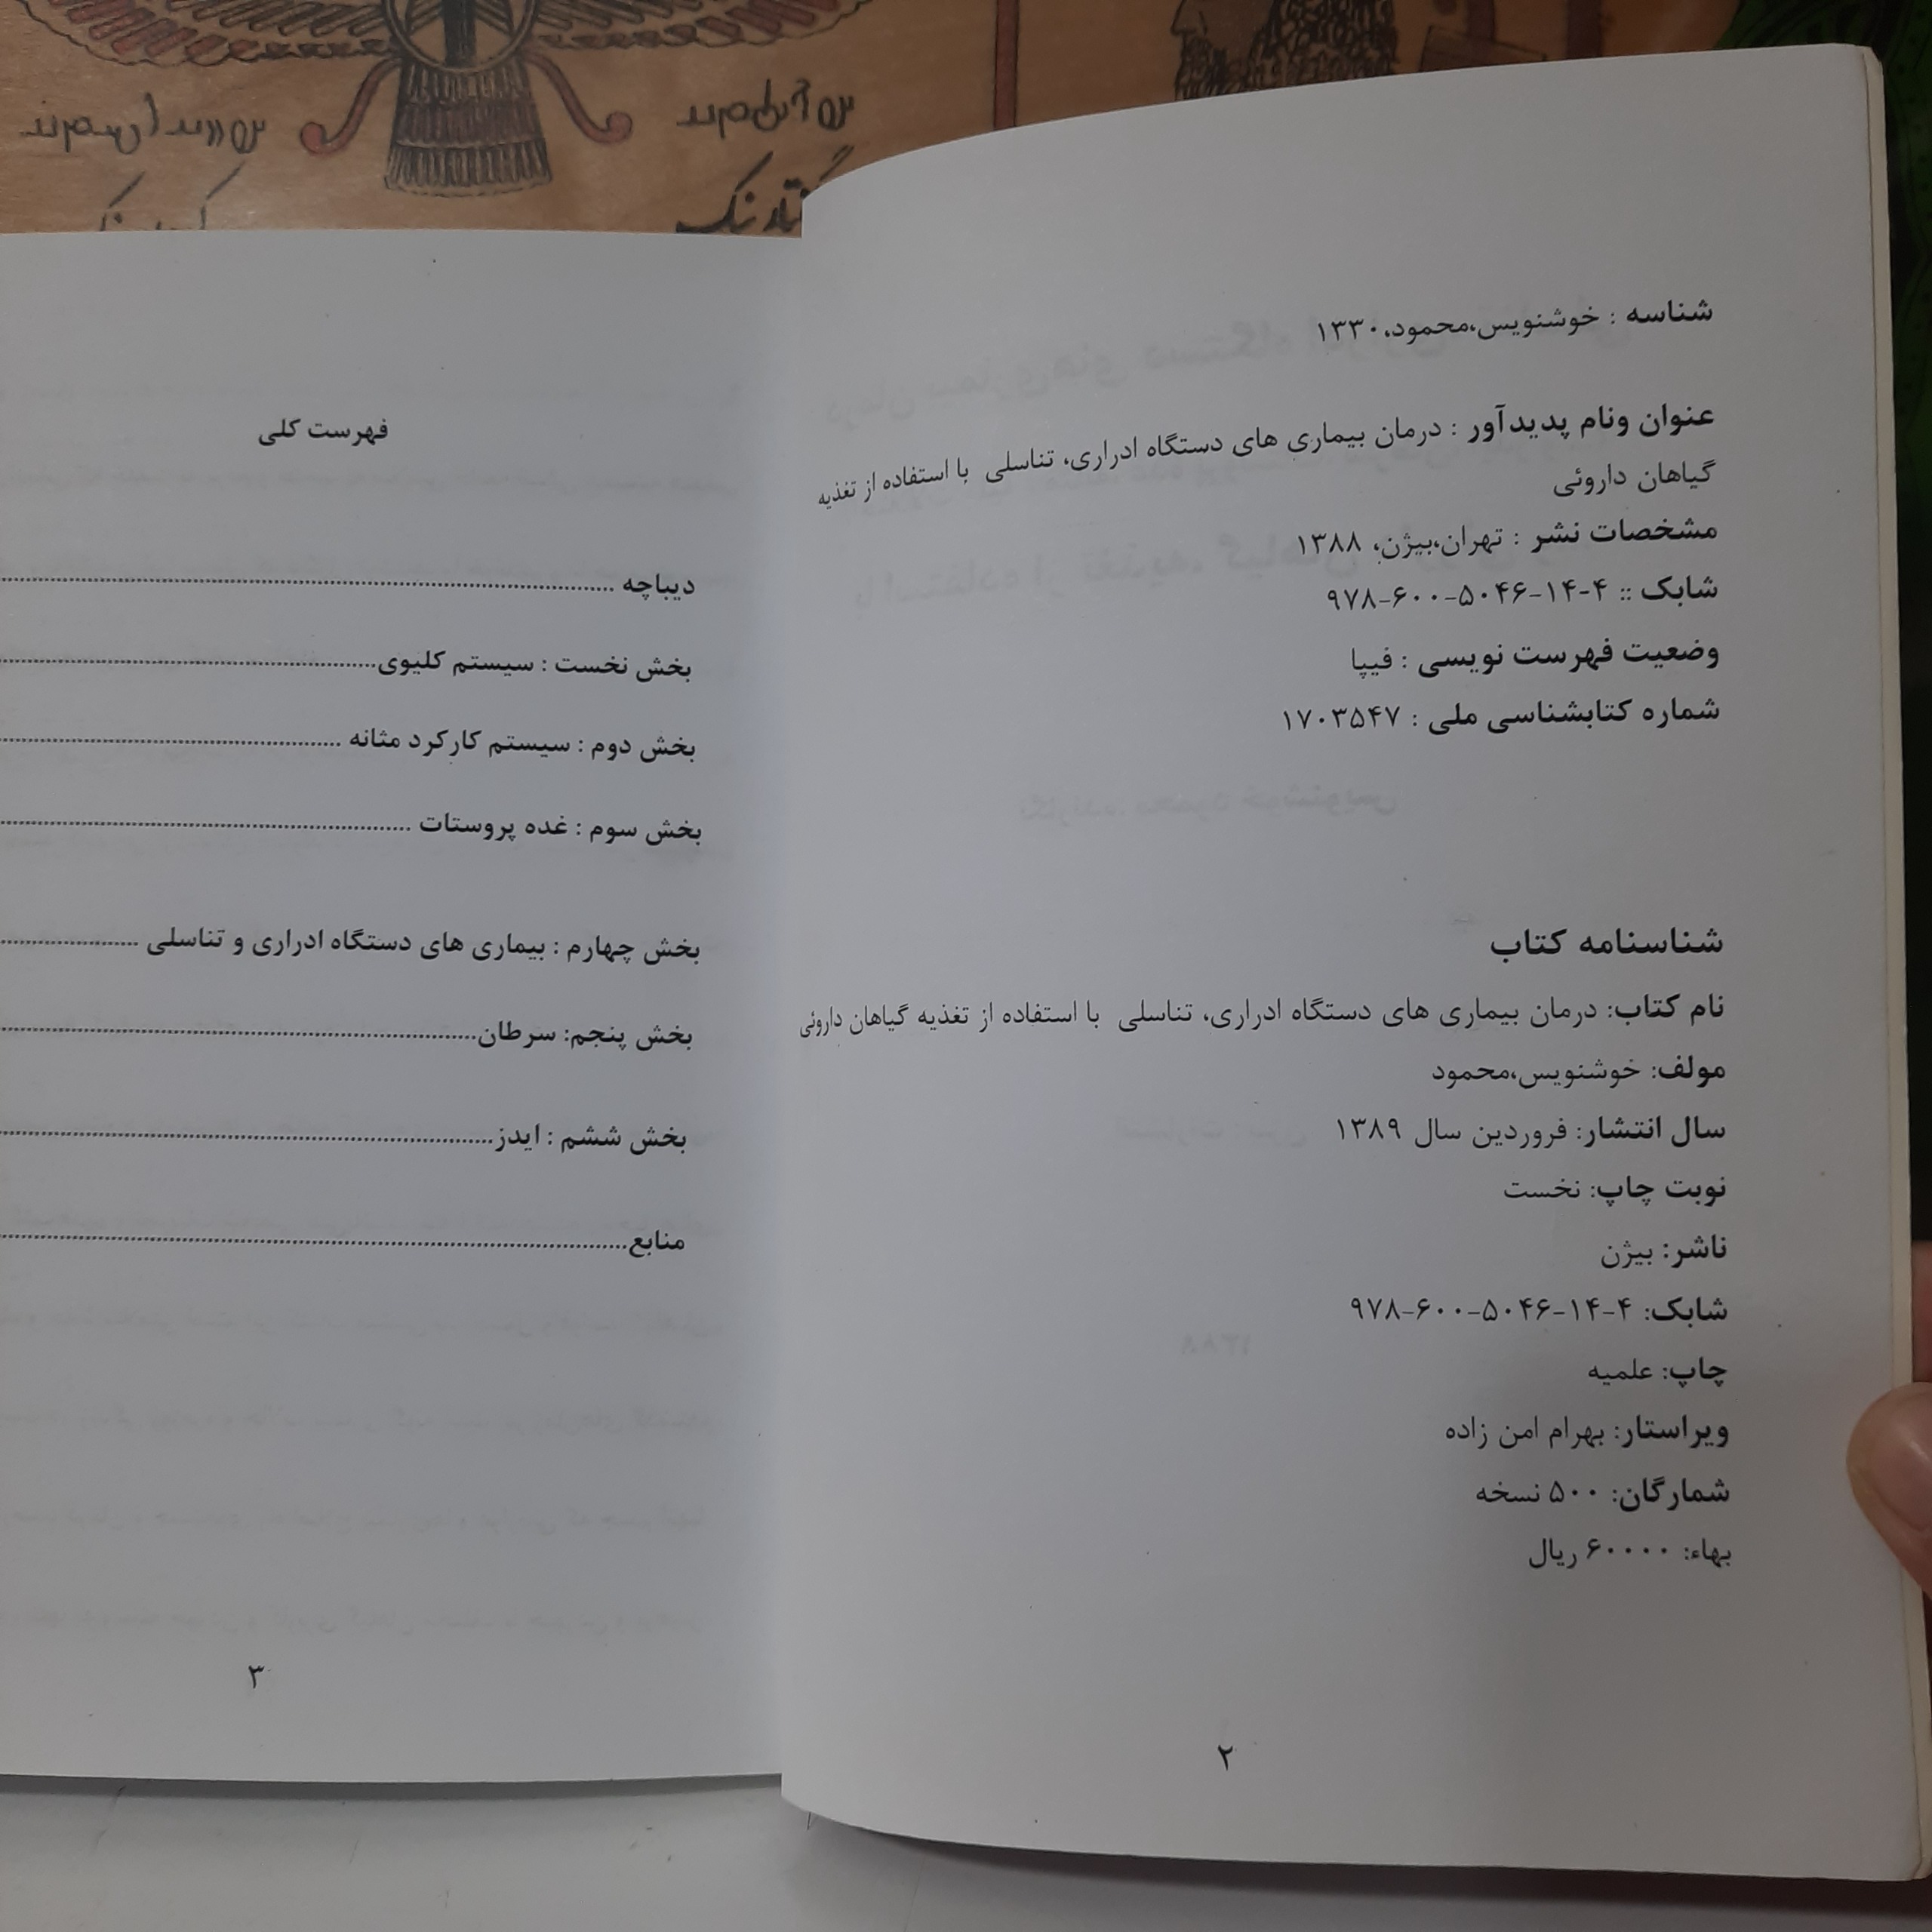 گفتار نیک
شناسه : خوشنویس،محمود،۱۳۳۰
عنوان ونام پدیدآور : درمان بیماری های دستگاه ادراری، تناسلی با استفاده از تغذیه
گیاهان داروئی
مشخصات نشر : تهران،بیژن، ۱۳۸۸
شابک :: ۴-۱۴-۵۰۴۶-۶۰۰-۹۷۸
وضعیت فهرست نویسی : فیپا
شماره کتابشناسی ملی : ۱۷۰۳۵۴۷
شناسنامه کتاب
نام کتاب: درمان بیماری های دستگاه ادراری، تناسلی با استفاده از تغذیه گیاهان داروئی
مولف: خوشنویس،محمود
سال انتشار: فروردین سال ۱۳۸۹
نوبت چاپ: نخست
ناشر: بیژن
شابک: ۴-۱۴-۵۰۴۶-۶۰۰-۹۷۸
چاپ: علمیه
ویراستار: بهرام امن زاده
شمارگان: ۵۰۰ نسخه
بهاء: ۶۰۰۰۰ ریال
۲
فهرست کلی
دیباچه ................................................
بخش نخست : سیستم کلیوی................................
بخش دوم : سیستم کارکرد مثانه ............................
بخش سوم : غده پروستات ................................
بخش چهارم : بیماری های دستگاه ادراری و تناسلی ..............
بخش پنجم: سرطان......................................
بخش ششم : ایدز.......................................
منابع..................................................
۳